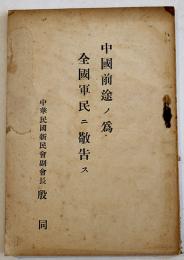 中國前途ノ爲
全國軍民ニ敬告ス
中華民國新民會副會長 殷同